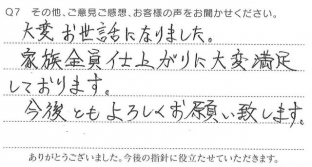 Q7 その他、ご意見ご感想、お客様の声をお聞かせください。
大変お世話になりました。
家族全員仕上がりに大変満足
しております。
今後ともよろしくお願い致します。
ありがとうございました。今後の指針に役立たせていただきます。